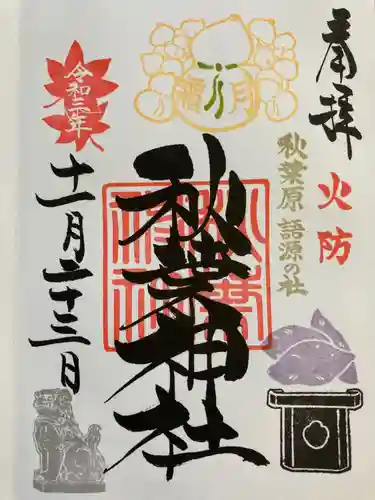 奉拝
火防
秋葉原 語源の社
霜月
秋葉神社
令和三年
十一月二十三日